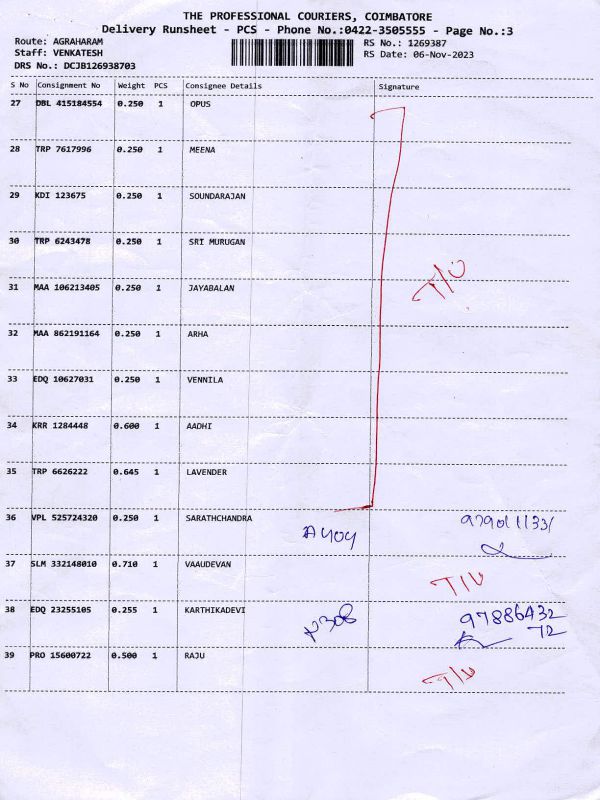 THE PROFESSIONAL COURIERS, COIMBATORE
Delivery Runsheet - PCS - Phone No.:0422-3505555 - Page No.:3
Route: AGRAHARAM RS No.: 1269387
Staff: VENKATESH RS Date: 06-Nov-2023
DRS No.: DCJB126938703
S No Consignment No Weight PCS Consignee Details Signature
27 DBL 415184554 0.250 1 OPUS
28 TRP 7617996 0.250 1 MEENA
29 KDI 123675 0.250 1 SOUNDARAJAN
30 TRP 6243478 0.250 1 SRI MURUGAN
T/U
31 MAA 106213405 0.250 1 JAYABALAN
32 MAA 862191164 0.250 1 ARHA
33 EDQ 10627031 0.250 1 VENNILA
34 KRR 1284448 0.600 1 AADHI
35 TRP 6626222 0.645 1 LAVENDER
36 VPL 525724320 0.250 1 SARATHCHANDRA
A404 9790111331
37 SLM 332148010 0.710 1 VAAUDEVAN
T/U
38 EDQ 23255105 0.255 1 KARTHIKADEVI
97886432
72
39 PRO 15600722 0.500 1 RAJU
T/U